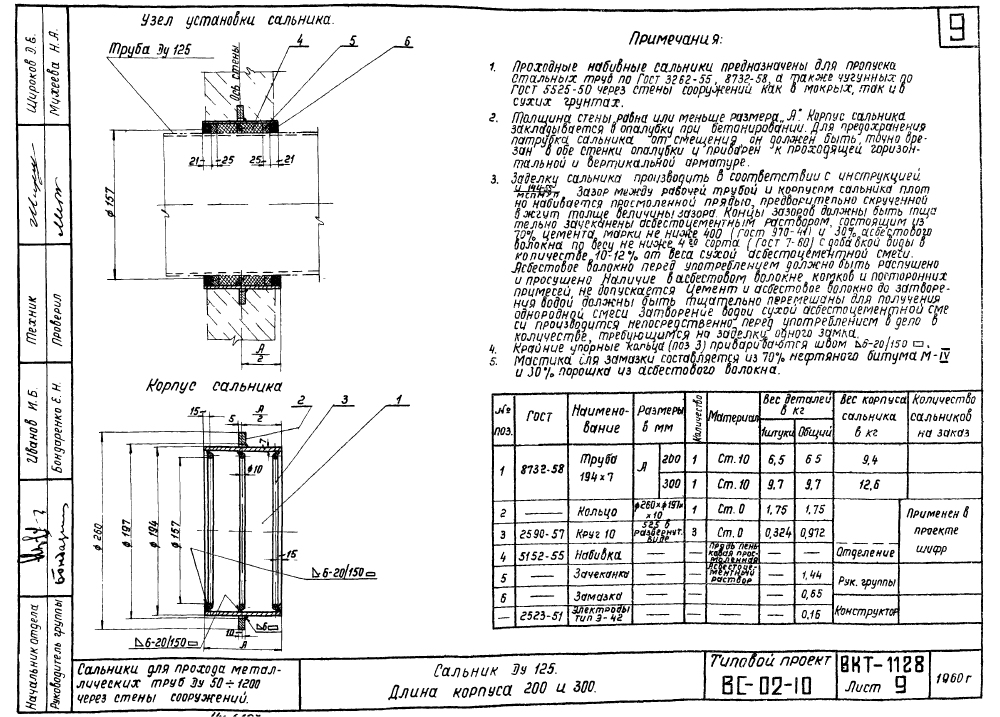 Узел установки сальника.
Труба Ду 125
Ось стены
4
5
6
21
25
25
21
ф157
А
2
Корпус сальника
15
5
А
2
2
3
1
7
ф10
ф260
ф197
ф194
ф157
15
6-20/150
10
А
6
6-20/150
9
Примечания:
1. Проходные набивные сальники предназначены для пропуска
стальных труб по Гост 3262-55, 8732-58, а также чугунных по
ГОСТ 5525-50 через стены сооружений как в мокрых, так и в
сухих грунтах.
2. Толщина стены равна или меньше размера „А". Корпус сальника
закладывается в опалубку при бетонировании. Для предохранения
патрубка сальника от смещения он должен быть точно вре-
зан в обе стенки опалубки и приварен к проходящей горизон-
тальной и вертикальной арматуре.
3. Заделку сальника производить в соответствии с инструкцией
Зазор между рабочей трубой и корпусом сальника плот
но набивается просмоленной прядью, предварительно скрученной
в жгут толще величины зазора. Концы зазоров должны быть тща
тельно зачеканены асбестоцементным раствором, состоящим из
70% цемента, марки не ниже 400 (гост 970-41) и 30% асбестового
волокна по весу не ниже 4го сорта (Гост 7-60) с добавкой воды в
количестве 10-12% от веса сухой асбестоцементной смеси.
Асбестовое волокно перед употреблением должно быть распушено
и просушено Наличие в асбестовом волокне комков и посторонних
примесей не допускается Цемент и асбестовое волокно до затворе-
ния водой должны быть тщательно перемешаны для получения
однородной смеси Затворение водой сухой асбестоцементной сме
си производится непосредственно перед употреблением в дело в
количестве, требующимся на заделку одного замка.
4. Крайние упорные кольца (поз 3) привариваются швом 6-20/150.
5. Мастика для замазки составляется из 70% нефтяного битума М-IV
и 30% порошка из асбестового волокна.
№ поз. Гост Наимено-вание Размеры в мм Количество Материал Вес деталей в кг 1штуки Общий Вес корпуса сальника в кг Количество сальников на заказ
1 8732-58 Труба 194×7 А 200 1 Ст. 10 6,5 6 5 9,4
300 1 Ст. 10 9,7 9,7 12,6
2 — Кольцо ф260×ф197× ×10 1 Ст. 0 1,75 1,75
3 2590-57 Круг 10 525 в развернут. виде 3 Ст. 0 0,324 0,972
4 5152-55 Набивка — — Прядь пень ковая прос-моленная — —
5 — Зачеканка — — Асбестоце-ментный раствор — 1,44
6 — Замазка — — — — 0,65
— 2523-51 Электроды тип Э-42 — — — — 0,16
Применен в
проекте
шифр
Отделение
Рук. группы
Конструктор
Сальники для прохода метал-
лических труб Ду 50÷1200
через стены сооружений.
Сальник Ду 125.
Длина корпуса 200 и 300.
Типовой проект
ВС-02-10
ВКТ-1128
Лист 9
1960 г
Начальник отдела
Иванов И.Б.
Техник
Широков Д.Б.
Руководитель группы
Бондаренко Е.Н.
Проверил
Михеева Н.А.